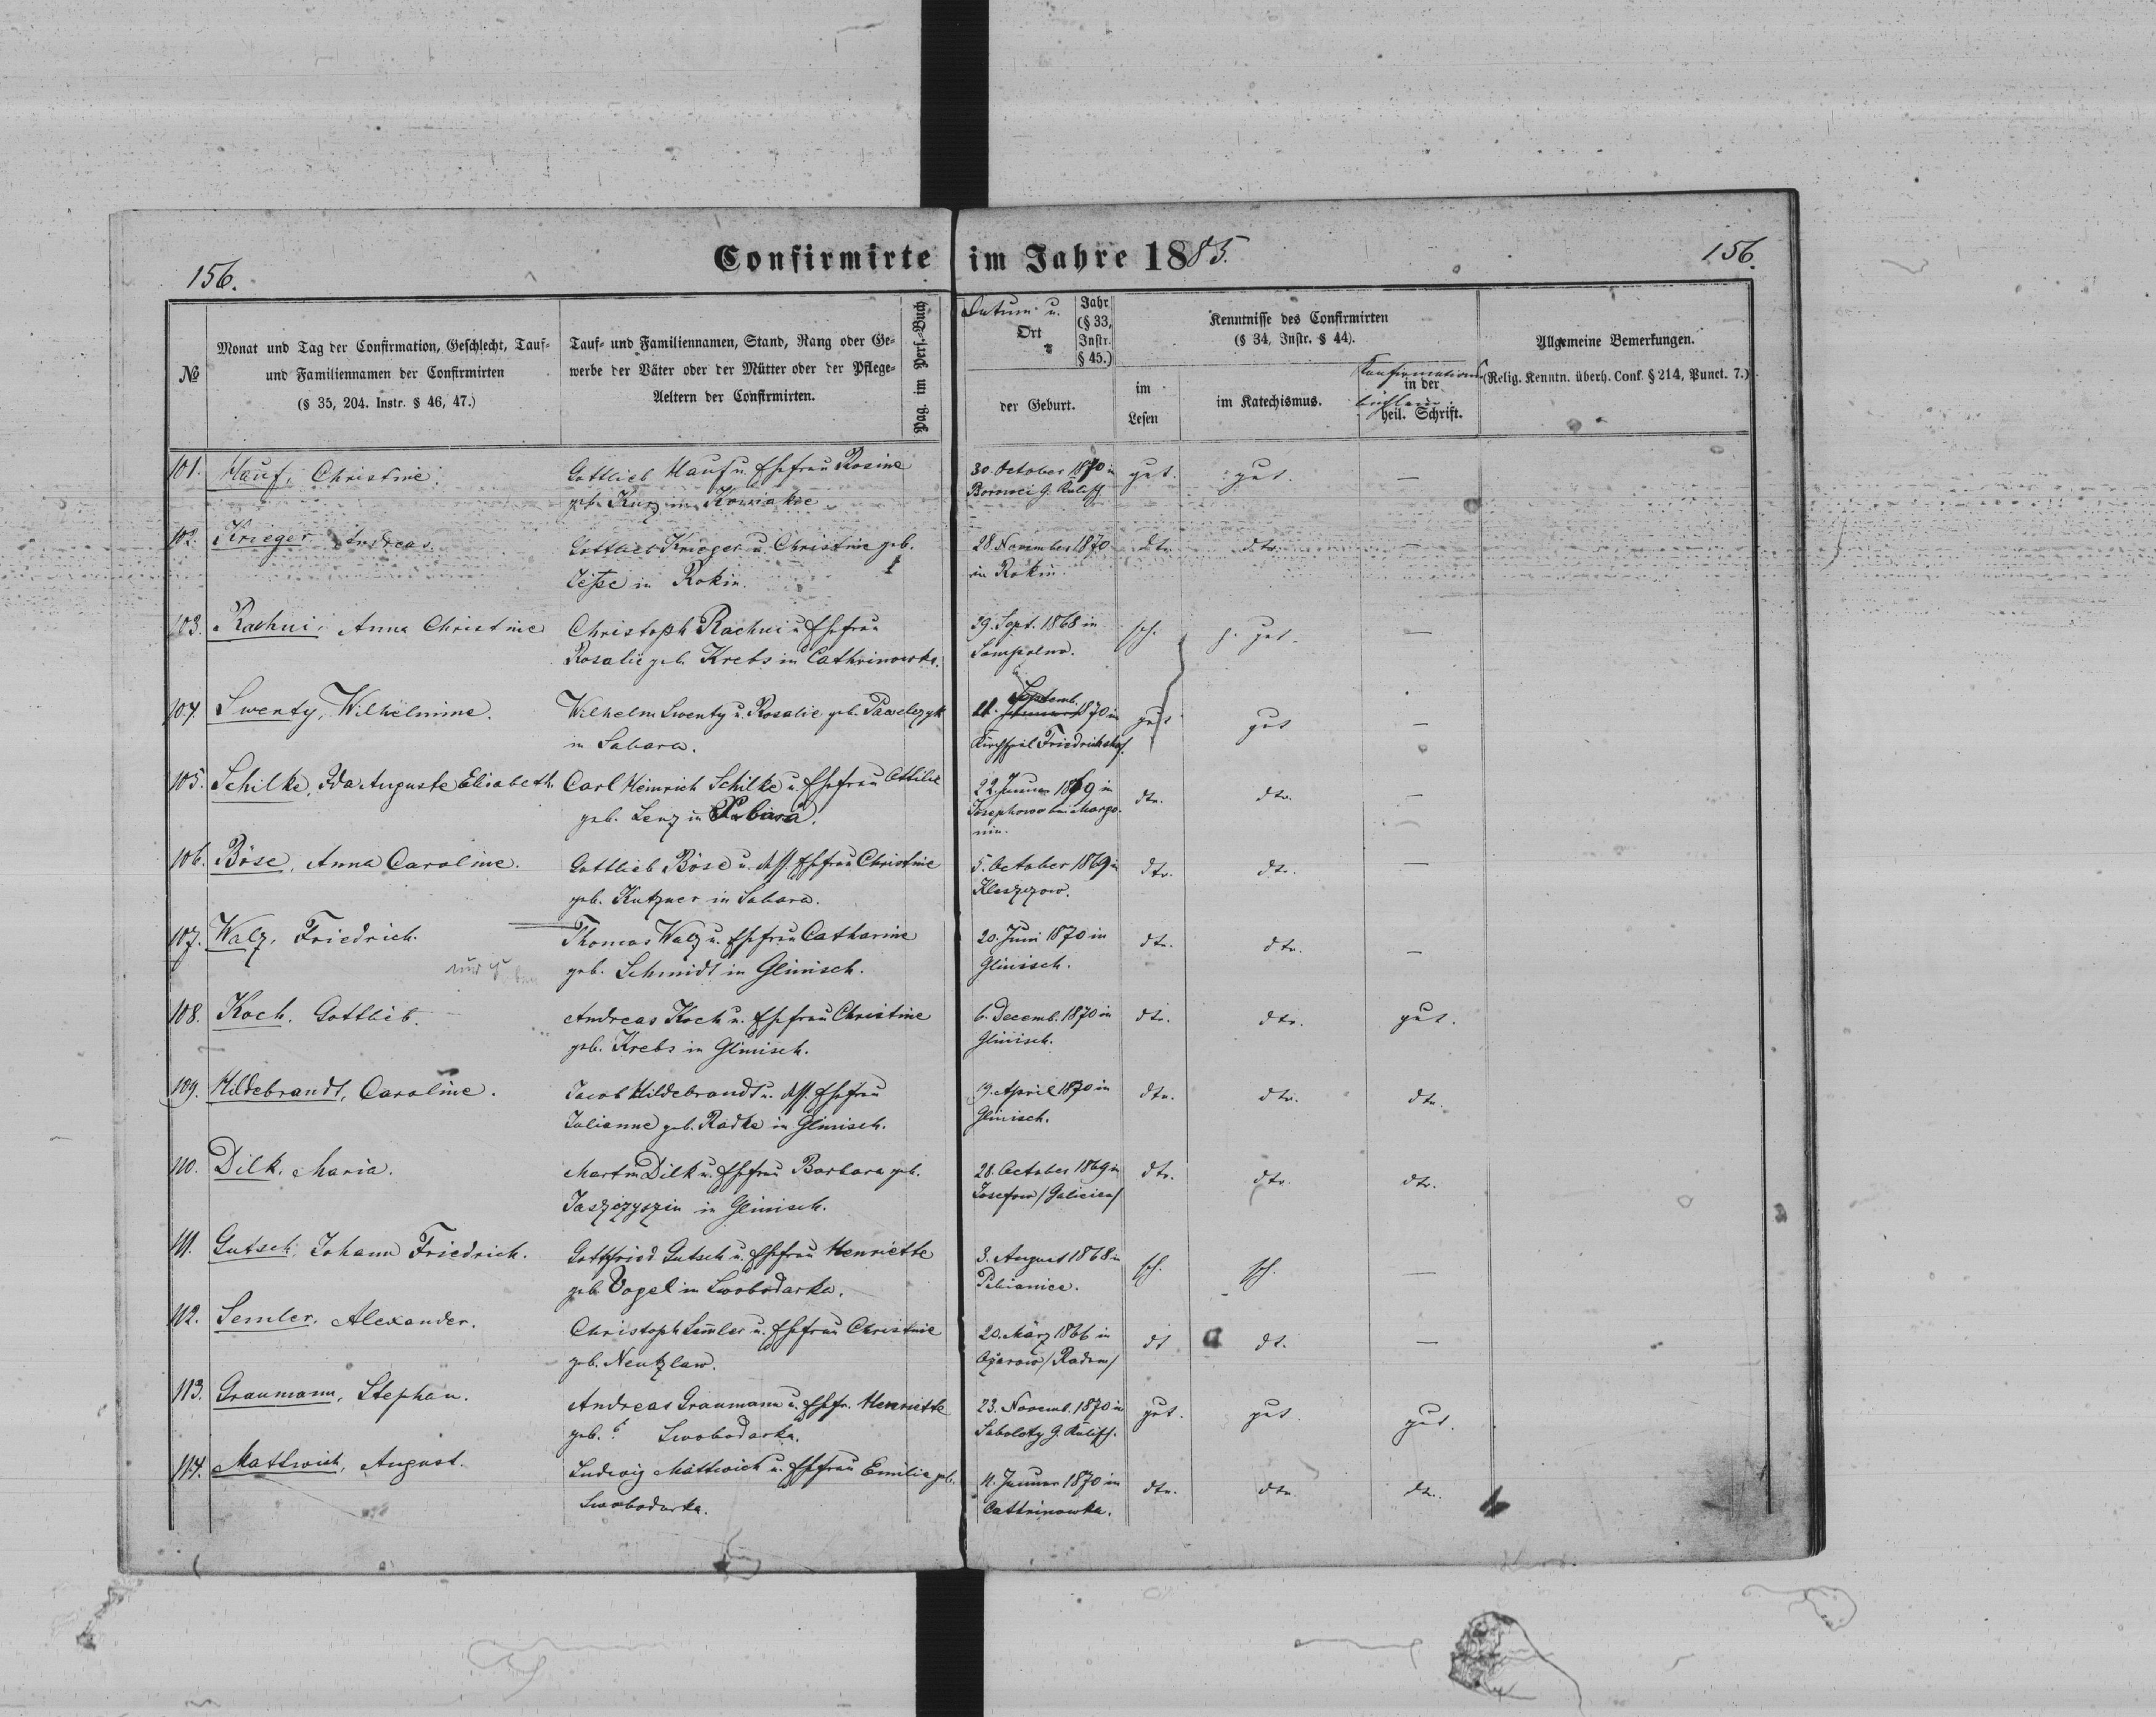 156.
Confirmirte im Jahre 1885.
156.
№
Monat und Tag der Confirmation, Geschlecht, Tauf-
und Familiennamen der Confirmirten
(§ 35, 204. Instr. § 46, 47.)
Tauf- und Familiennamen, Stand, Rang oder Ge-
werbe der Väter oder der Mütter oder der Pflege-
Aeltern der Confirmirten.
Pag. im Pers.-Buch
Datum u.
Ort
Jahr
(§ 33,
Instr.
§ 45.)
der Geburt.
Kenntnisse des Confirmirten
(§ 34, Instr. § 44).
im
Lesen
im Katechismus.
Confirmations
in der
heil. Schrift.
Allgemeine Bemerkungen.
(Relig. Kenntn. überh. Conf. § 214, Punct. 7.)
101. Hauf, Christine. Gottlieb Hauf u. Ehefrau Rosine 30. October 1870 in gut. gut. —
geb. Kurz in G. Kalisch
102. Krieger Andreas. Gottlieb Krieger u. Christine geb. 28 November 1870 dto. dto. —
in Rokin. in Rokin
103. Rachui, Anna Christine Christoph Rachui u. Ehefrau 29. Sept. 1868 in sch. z. gut. —
Rosalie geb. Krebs in Cathrinowka. Sompolno.
104. Swenty, Wilhelmine. Wilhelm Swenty u. Rosalie geb. Pawelczyk Septemb. 1870 in gut gut —
in Sabara. Kirchspiel Friedrichshof.
105. Schilke, Ida Auguste Elisabeth. Carl Heinrich Schilke u. Ehefrau Ottilie 22. Januar 1869 in dto. dto. —
geb. Lenz in Sabara. Josephowo bei Margo-
nin.
106. Böse, Anna Caroline. Gottlieb Böse u. dss. Ehefrau Christine 5. October 1869 in dto. dto. —
geb. Kutzner in Sabara. Kleszczow.
107. Walz, Friedrich. Thomas Walz u. Ehefrau Catharine 20. Juni 1870 in dto. dto. —
geb. Schmidt in Glinisch. Glinisch.
108. Koch, Gottlieb. Andreas Koch u. Ehefrau Christine 6. Decemb. 1870 in dto. dto. gut.
geb. Krebs in Glinisch. Glinisch.
109. Hildebrandt, Caroline. Jacob Hildebrandt u. dss. Ehefrau 19. April 1870 in dto. dto. dto.
Julianne geb. Radke in Glinisch. Glinisch.
110. Dilk, Maria. Martin Dilk u. Ehefrau Barbara geb. 28. October 1869 in dto. dto. dto.
in Glinisch. Josefow /Galicien/
111. Gutsch, Johann Friedrich. Gottfried Gutsch u. Ehefrau Henriette 3. August 1868 in sch. sch. —
geb. Vogel in Swobodarka. Pabianice.
112. Semler, Alexander. Christoph Semler u. Ehefrau Christine 20. März 1866 in dt dt. —
geb. Neutzlaw. Ożarow /Radom/
113. Graumann, Stephan. Andreas Graumann u. Ehefr. Henriette 23. Novemb. 1870 in gut. gut. gut.
geb. ? Swobodarka. Sabolotz G. Kalisch.
114. Mattwich, August. Ludwig Mattwich u. Ehefrau Emilie geb. 11. Januar 1870 in dto. dto. dt.
Swobodarka. Cathrinowka.